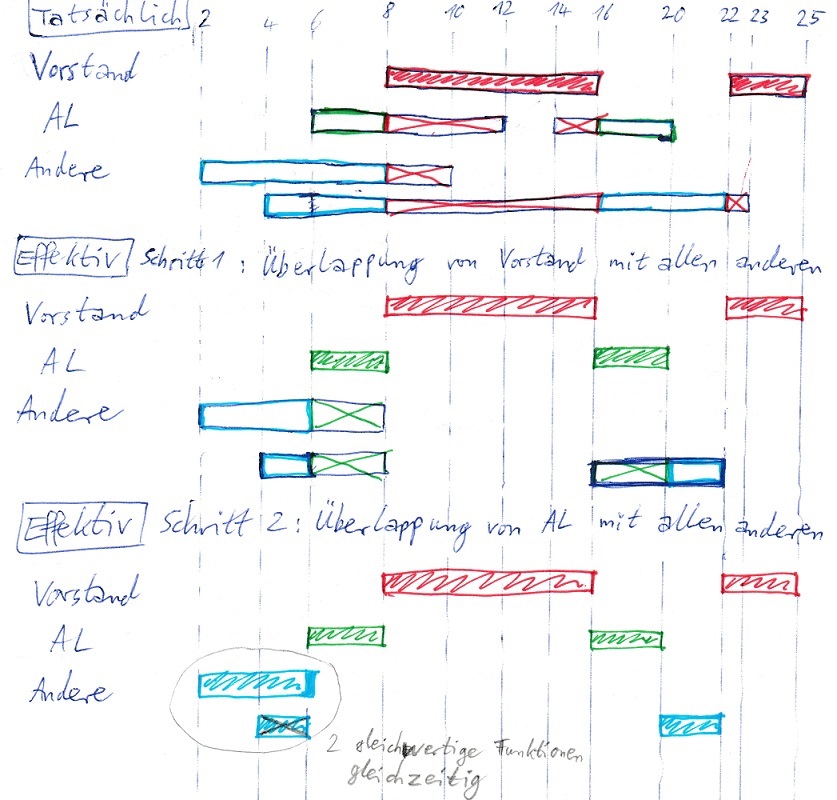 Tatsächlich 2 4 6 8 10 12 14 16 20 22 23 25
Vorstand
AL
Andere
Effektiv Schritt 1: Überlappung von Vorstand mit allen anderen
Vorstand
AL
Andere
Effektiv Schritt 2: Überlappung von AL mit allen anderen
Vorstand
AL
Andere
2 gleichwertige Funktionen
gleichzeitig